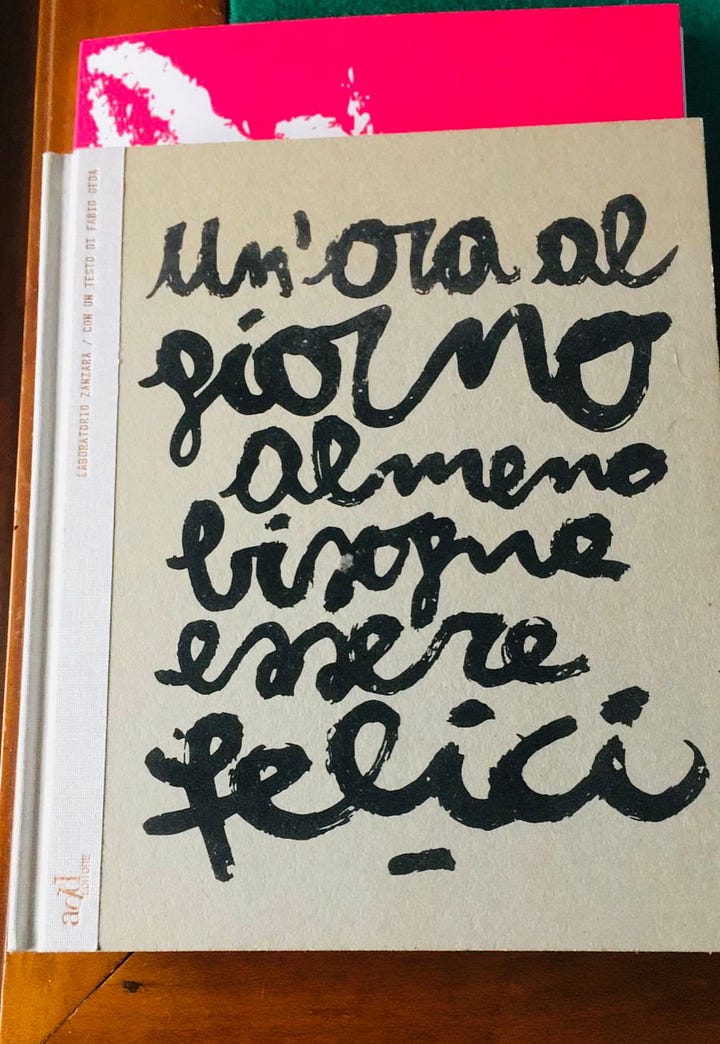 Un'ora al
giorno
almeno
bisogna
essere
felici
LABORATORIO ZANZARA / CON UN TESTO DI FABIO GEDA
add
EDITORE